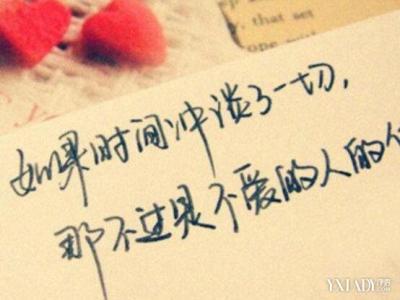 that set
如果时间冲淡了一切，
那不过是不爱的人的
YXLADY.COM